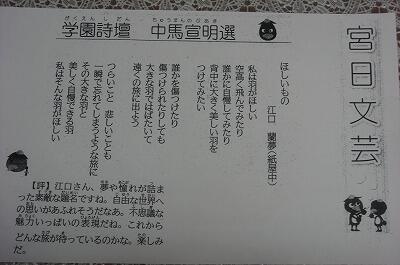 宮日文芸
がくえんしだん　ちゅうまんのぶあき
学園詩壇　中馬宣明選
ほしいもの
江口　蘭夢(紙屋中)
私は羽がほしい
空高く飛んでみたり
誰かに自慢してみたり
背中に大きく美しい羽を
つけてみたい
誰かを傷つけたり
傷つけられたりしても
大きな羽ではばたいて
遠くの旅に出よう
つらいこと　悲しいことも
一瞬で忘れてしまうような旅に
その大きな羽と
美しく自慢できる羽
私はそんな羽がほしい
【評】江口さん、夢や憧れが詰ま
った素敵な題名ですね。自由な世界へ
の思いがあふれそうだなあ。不思議な
魅力いっぱいの表現だね。これから
どんな旅が待っているのかな。楽しみ
だ。